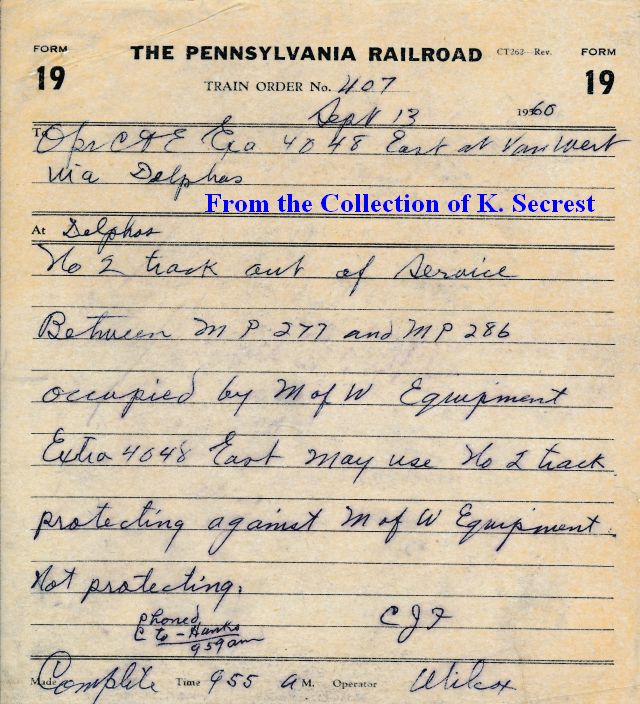 FORM 19 THE PENNSYLVANIA RAILROAD CT262—Rev. FORM 19
TRAIN ORDER No. 407
Sept 13 1960
To Opr C&E Exa 4048 East at Van Wert
via Delphos
From the Collection of K. Secrest
At Delphos
No 2 track out of service
Between MP 277 and MP 286
occupied by M of W Equipment
Extra 4048 East may use No 2 track
protecting against M of W Equipment
Not protecting.
phoned
C to - Hanks
959 am
CJF
Made Complete Time 955 a M. Operator Wilcox